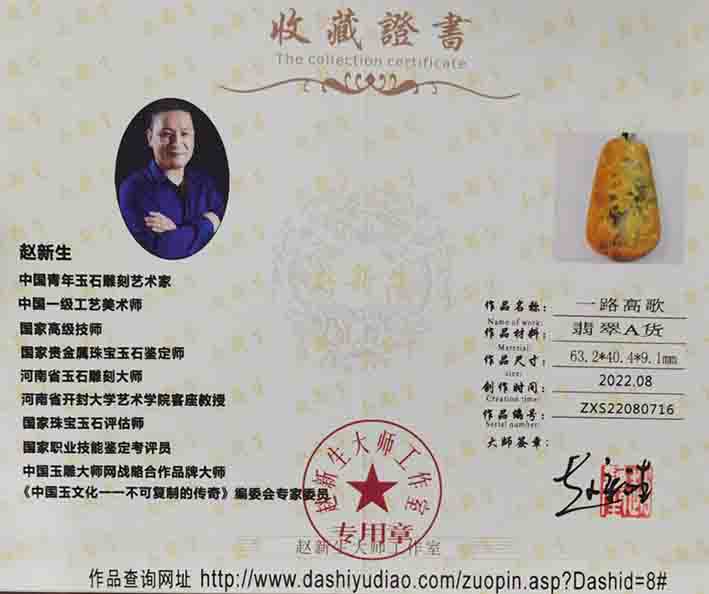 收藏證書
The collection certificate
赵新生
中国青年玉石雕刻艺术家
中国一级工艺美术师
国家高级技师
国家贵金属珠宝玉石鉴定师
河南省玉石雕刻大师
河南省开封大学艺术学院客座教授
国家珠宝玉石评估师
国家职业技能鉴定考评员
中国玉雕大师网战略合作品牌大师
《中国玉文化一一不可复制的传奇》编委会专家委员
赵新生
作品名称: 一路高歌
Name of work:
作品材料: 翡翠A货
Material:
作品尺寸: 63.2*40.4*9.1mm
size:
创作时间: 2022.08
Creation time:
作品编号: ZXS22080716
Serial number:
大师签章:
赵新生大师工作室
专用章
赵新生大师工作室
作品查询网址 http://www.dashiyudiao.com/zuopin.asp?Dashid=8#